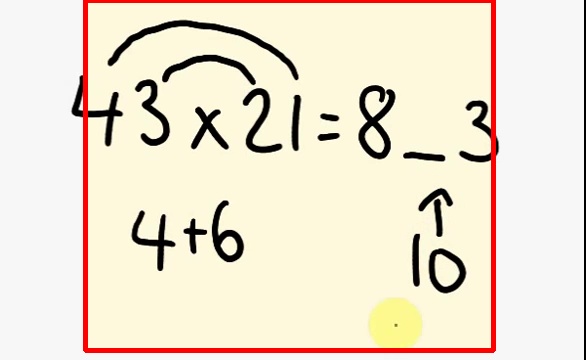 43 × 21 = 8_3
4+6
↑
10